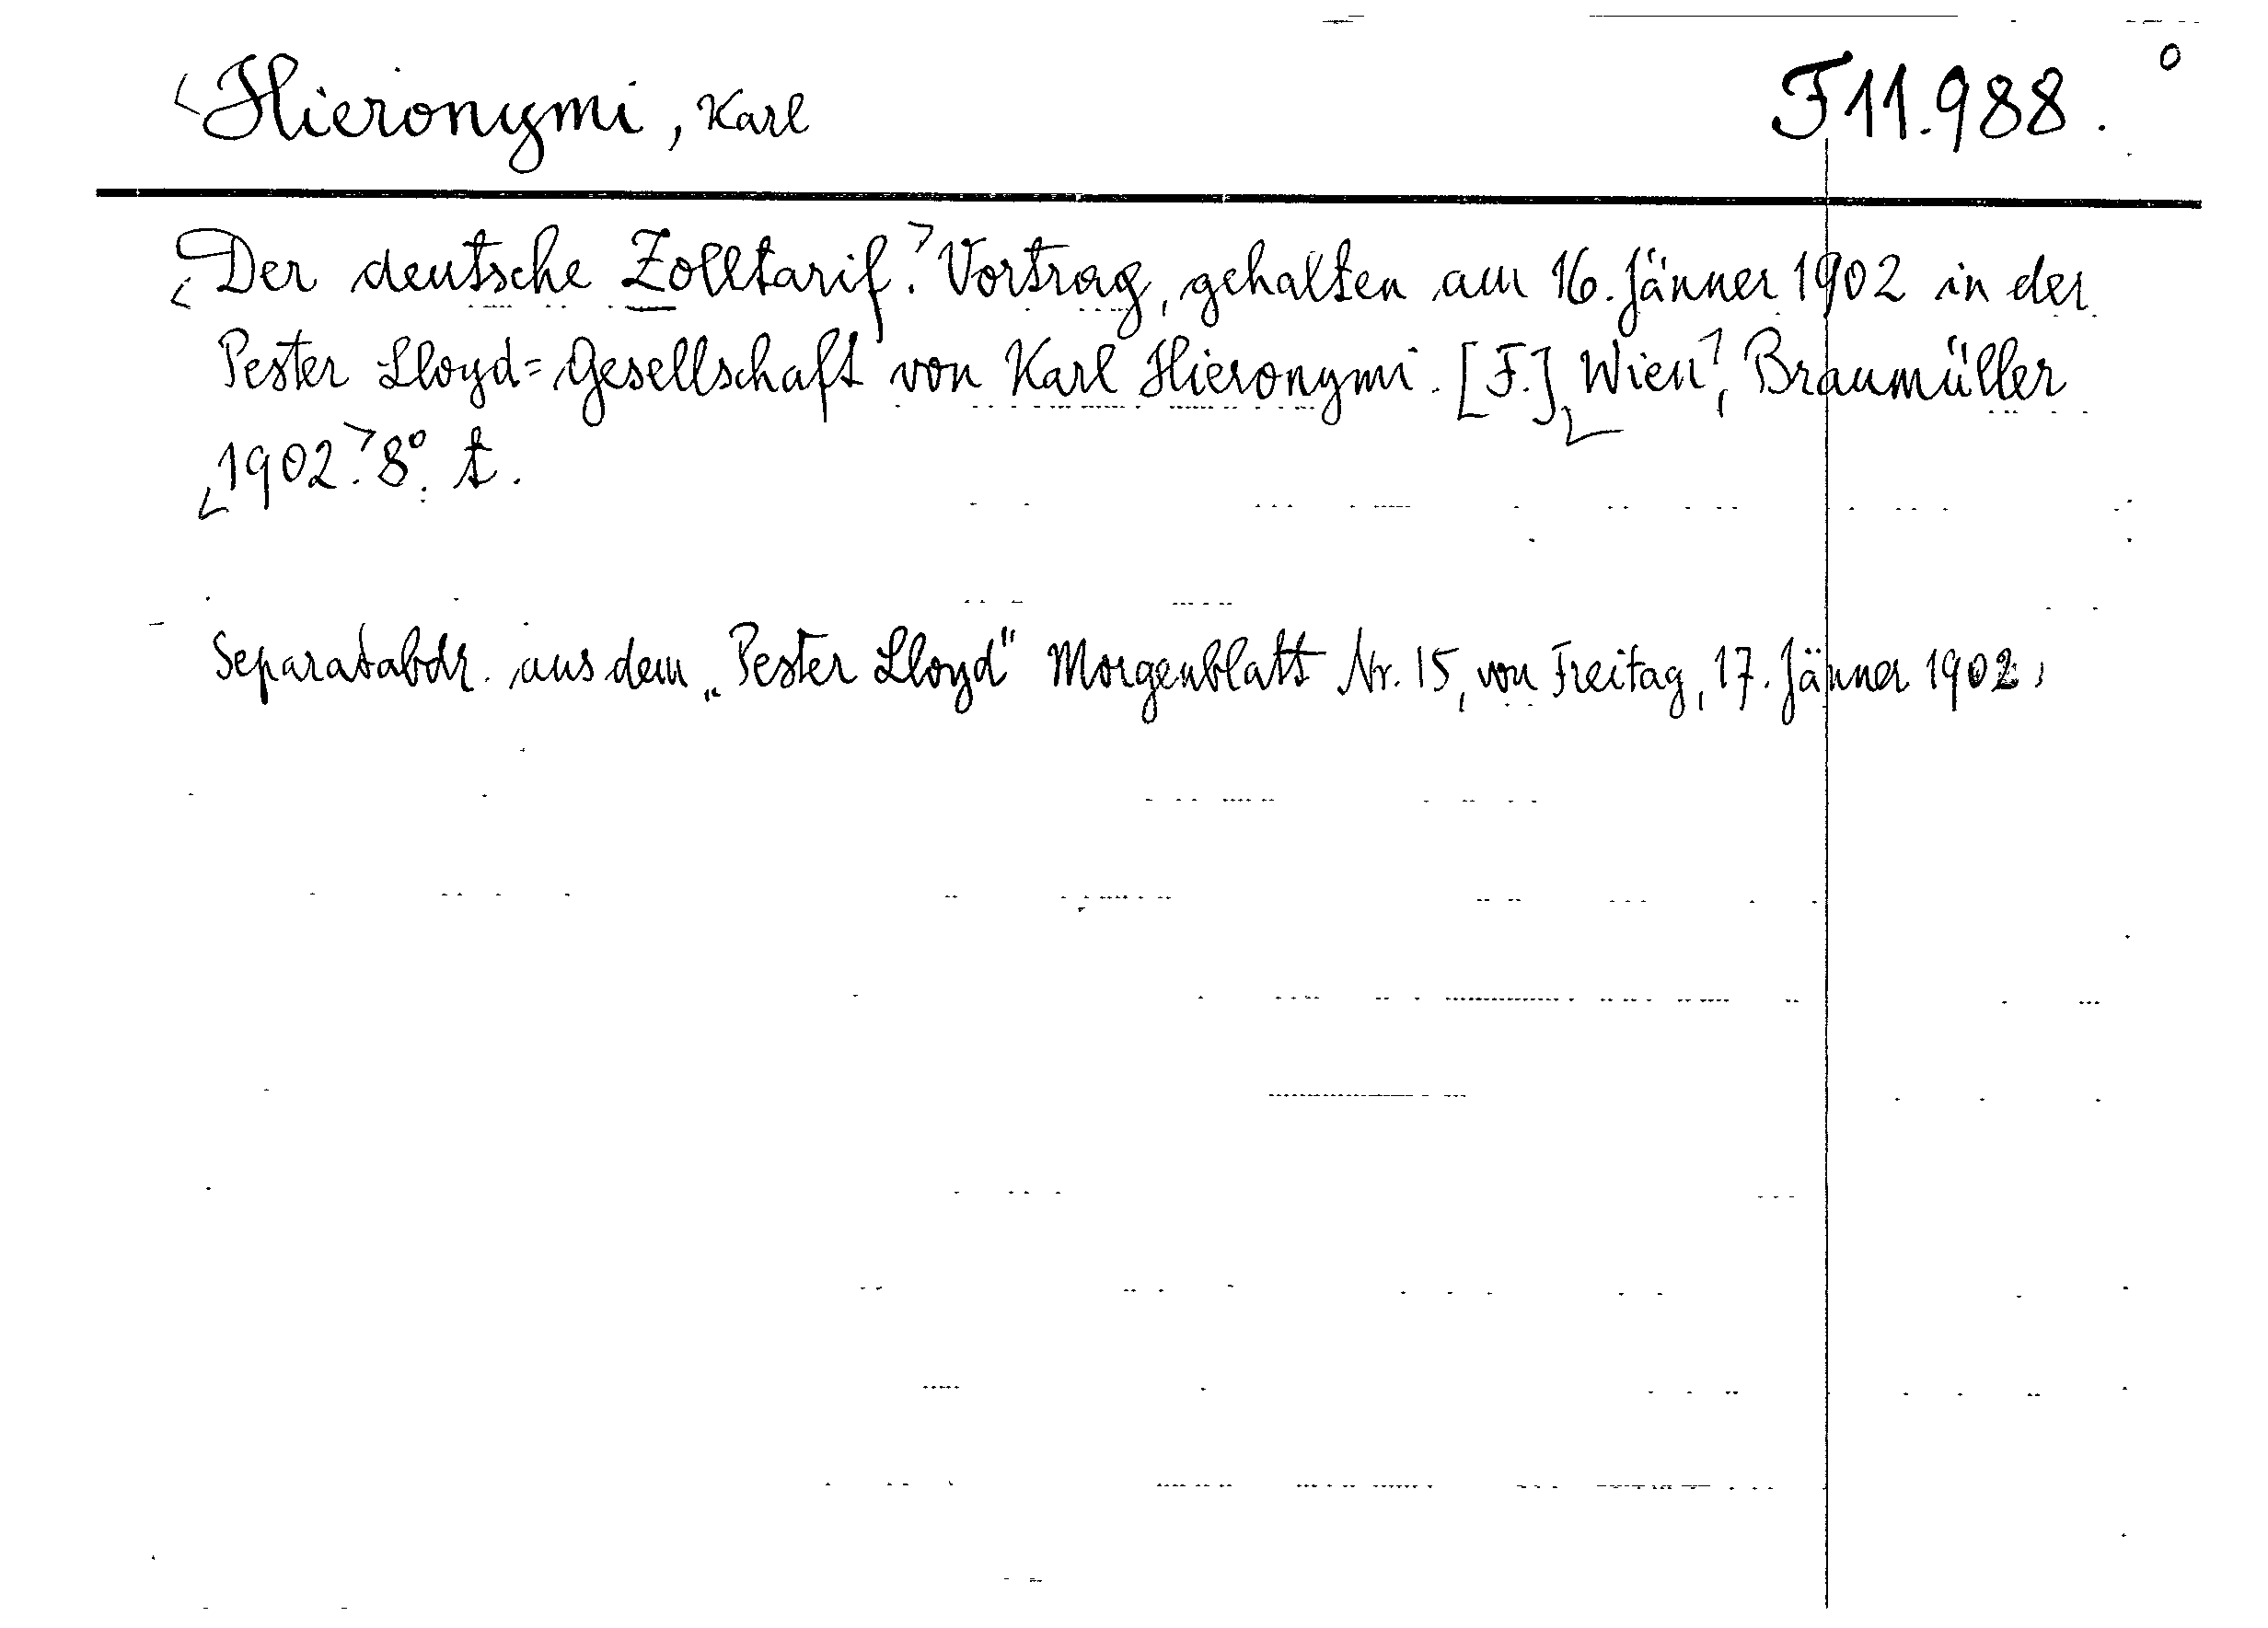 <Hieronymi, Karl F 11.988. o
<Der deutsche Zolltarif.> Vortrag, gehalten am 16. Jänner 1902 in der
Pester Lloyd=Gesellschaft von Karl Hieronymi. [F.] <Wien>, Braumüller
<1902.> 8°. t.
Separatabdr. aus dem „Pester Lloyd" Morgenblatt Nr. 15, von Freitag, 17. Jänner 1902.